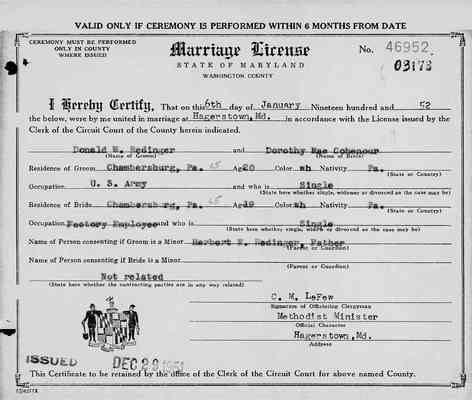 VALID ONLY IF CEREMONY IS PERFORMED WITHIN 6 MONTHS FROM DATE
CEREMONY MUST BE PERFORMED
ONLY IN COUNTY
WHERE ISSUED
Marriage License
STATE OF MARYLAND
WASHINGTON COUNTY
No. 46952
03173
I Hereby Certify, That on this 6th day of January Nineteen hundred and 52
the below, were by me united in marriage at Hagerstown, Md. in accordance with the License issued by the
Clerk of the Circuit Court of the County herein indicated.
Donald W. Redinger and Dorothy Mae Cobenour
(Name of Groom) (Name of Bride)
Residence of Groom Chambersburg, Pa. Age 20 Color wh Nativity Pa.
(State or Country)
Occupation U. S. Army and who is Single
(State here whether single, widower or divorced as the case may be)
Residence of Bride Chambersburg, Pa. Age 19 Color wh Nativity Pa.
(State or Country)
Occupation Factory Employee and who is Single
(State here whether single, widow or divorced as the case may be)
Name of Person consenting if Groom is a Minor Herbert Redinger, Father
(Parent or Guardian)
Name of Person consenting if Bride is a Minor
(Parent or Guardian)
Not related
(State here whether the contracting parties are in any way related)
C. M. LeFew
Signature of Officiating Clergyman
Methodist Minister
Official Character
Hagerstown, Md.
Address
ISSUED DEC 29 1951
This Certificate to be retained by the office of the Clerk of the Circuit Court for above named County.